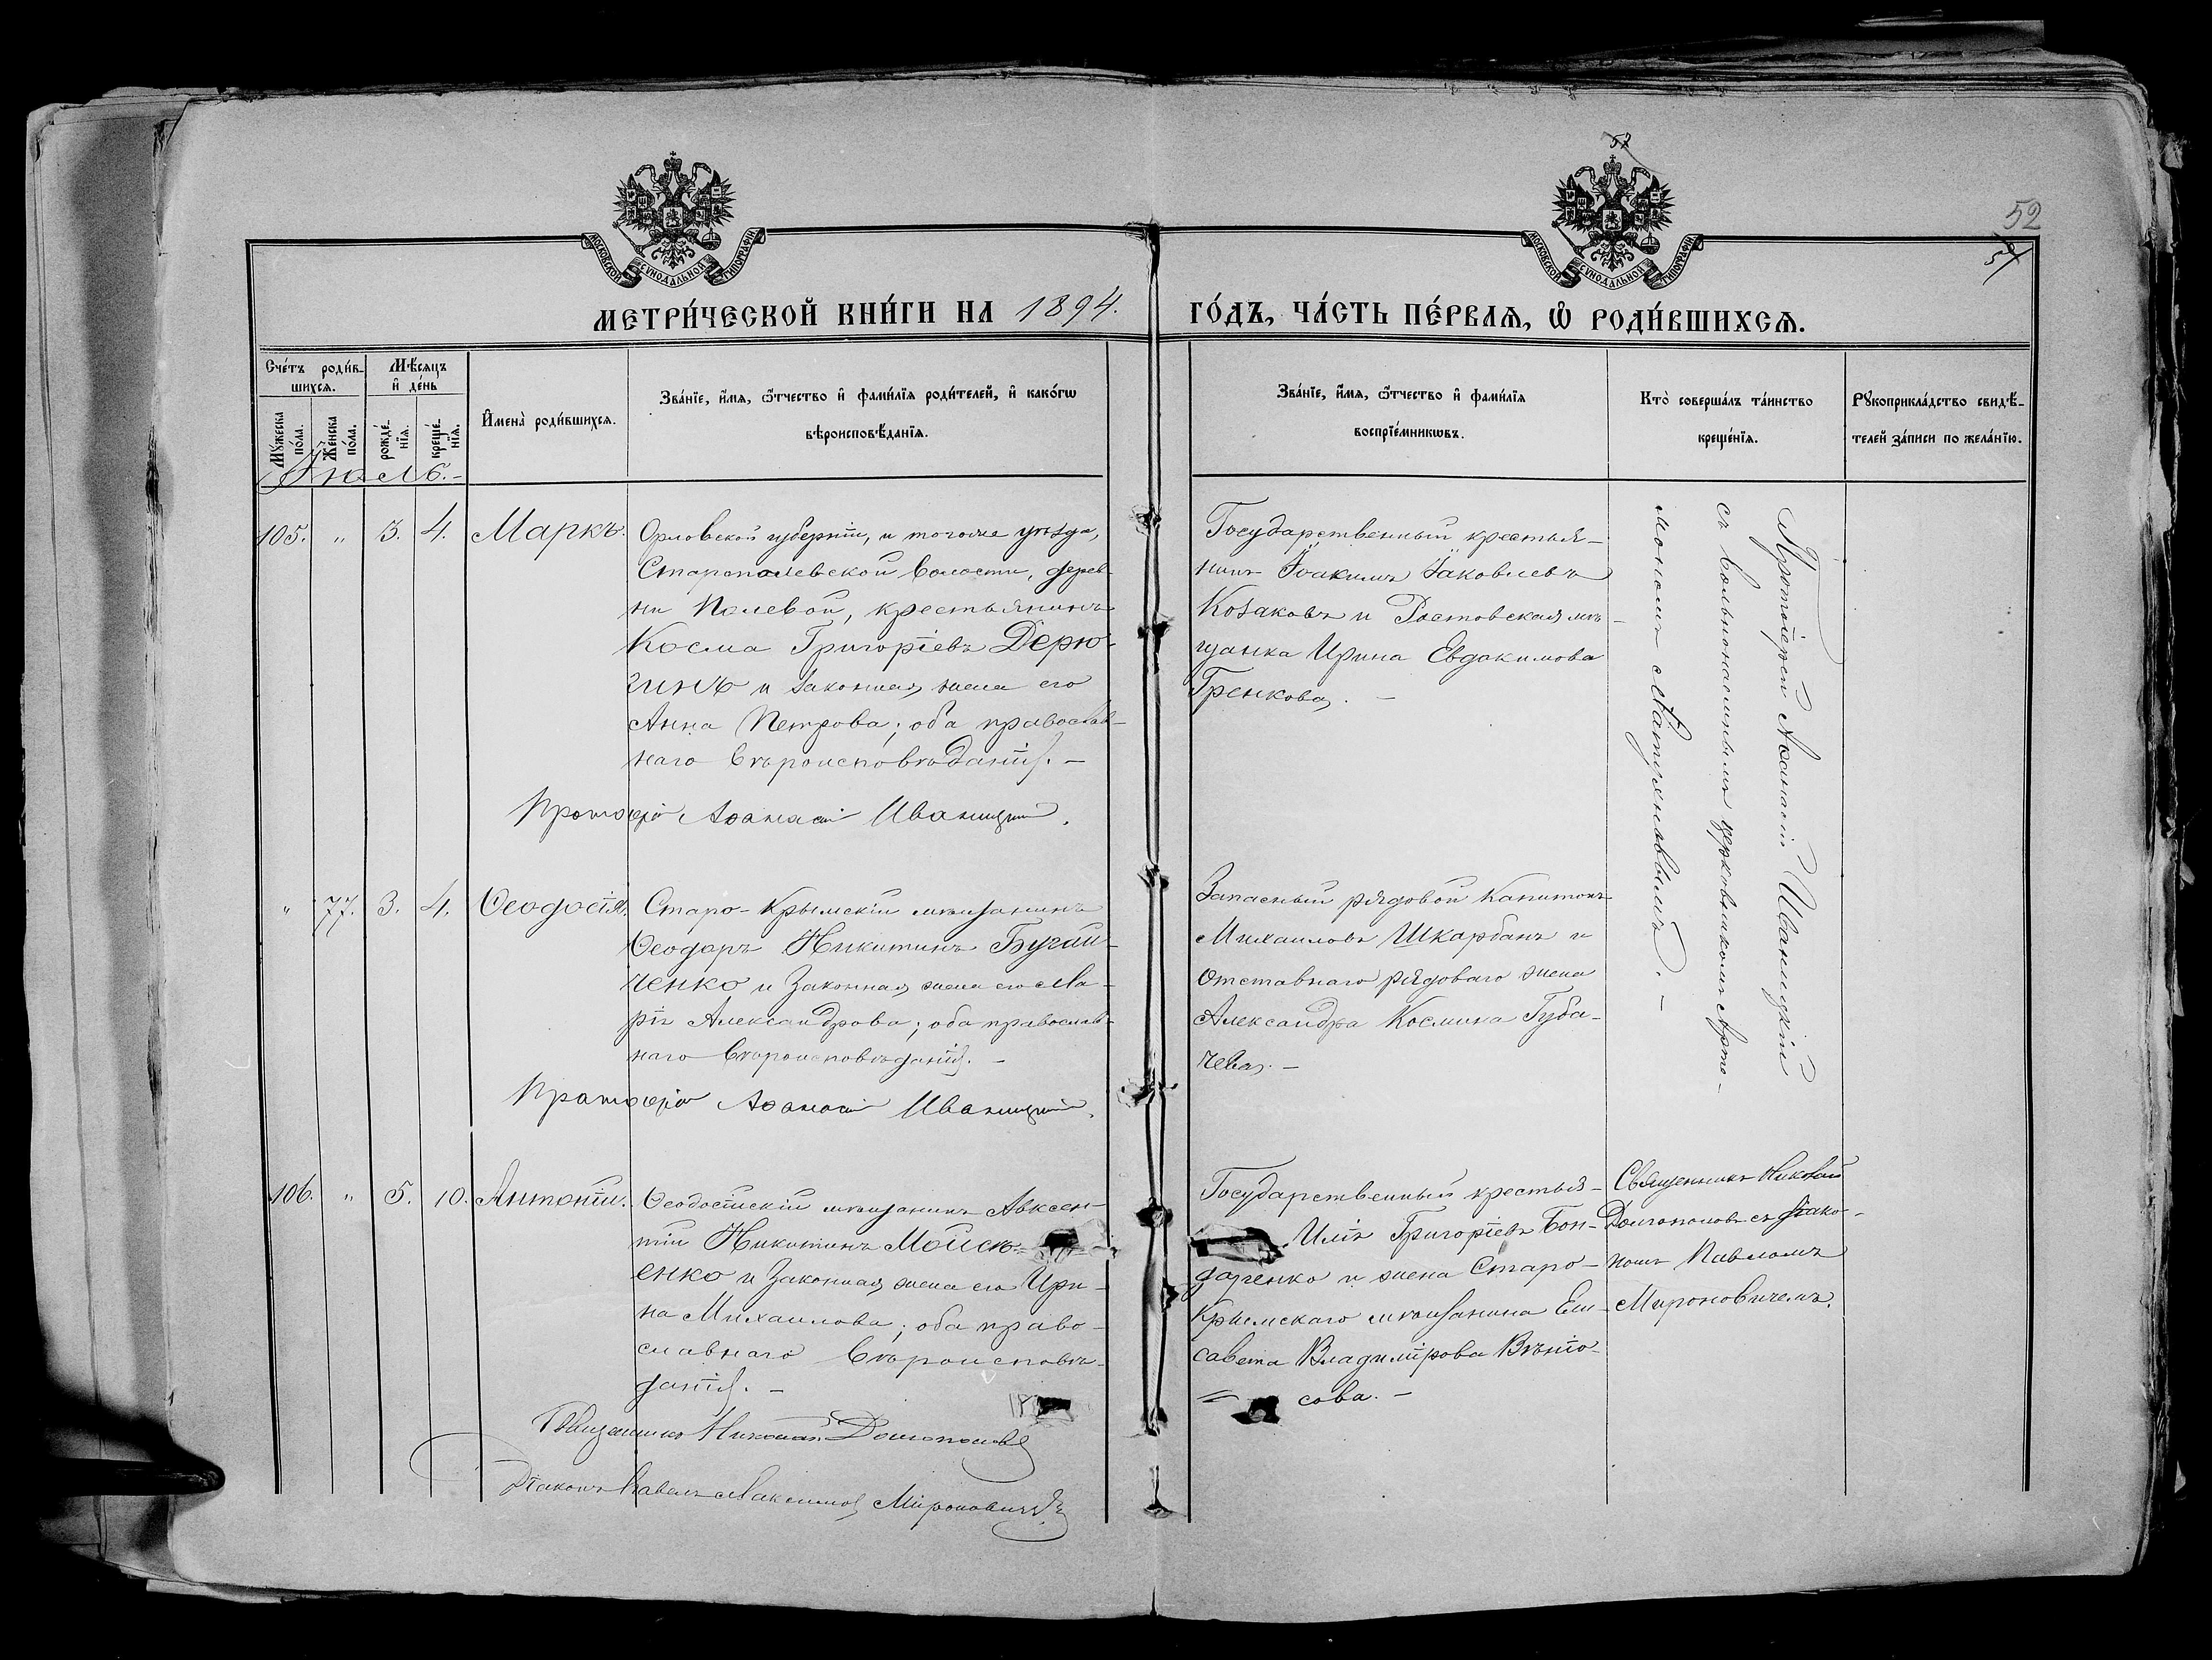 57
52
МОСКОВСКОЙ СѴНОДАЛЬНОЙ ТИПОГРАФІИ
МОСКОВСКОЙ СѴНОДАЛЬНОЙ ТИПОГРАФІИ
МЕТРИ́ЧЕСКОЙ КНИ́ГИ НА 1894. ГО́ДЪ, ЧА́СТЬ ПЕ́РВАЯ, Ѽ РОДИ́ВШИХСЯ.
Сче́тъ роди́в-
шихся.
Мѣ́сяцъ
и҆ де́нь
Мꙋ́жеска
по́ла.
Же́нска
по́ла.
рожде́-
нїя.
креще́-
нїя.
И҆мена̀ роди́вшихся.
Зва́нїе, и҆́мя, ѻ҆́тчество и҆ фами́лїя роди́телей, и҆ како́гѡ
вѣроисповѣ́данїя.
Зва́нїе, и҆́мя, ѻ҆́тчество и҆ фами́лїя
воспрїе́мникѡвъ.
Кто̀ соверша́лъ та́инство
креще́нїя.
Рꙋкоприкла́дство свидѣ́-
телей за́писи по жела́нїю.
Іюль.-
105. " 3. 4. Маркъ.
Орловской губерніи, и тогоже уѣзда,
Старополевской волости, дерев-
ни Полевой, крестьянинъ
Косма Григоріевъ Дерю-
гинъ и законная жена его
Анна Петрова; оба православ-
наго вѣроисповѣданія. -
Протоіерей Аѳанасій Иваницкій.
Государственный крестья-
нинъ Іоакимъ Іаковлевъ
Козаковъ и Ростовская мѣ-
щанка Ирина Евдокимова
Гренкова. -
Протоіерей Аѳанасій Иваницкій
съ вольнонаемнымъ церковникомъ Арте-
мономъ Матушевымъ. -
" 77. 3. 4. Ѳеодосія.
Старо-Крымскій мѣщанинъ
Ѳеодоръ Никитинъ Бугай-
ченко и законная жена его Ма-
рія Александрова; оба православ-
наго вѣроисповѣданія. -
Протоіерей Аѳанасій Иваницкій.
Запасный рядовой Капитонъ
Михаиловъ Шкарбанъ и
отставнаго рядоваго жена
Александра Космина Губа-
чева. -
106. " 5. 10. Антоній.
Ѳеодосійскій мѣщанинъ Авксен-
тій Никитинъ Мойсе-
енко и законная жена его Ири-
на Михаилова; оба право-
славнаго вѣроисповѣ-
данія. -
Священникъ Николай Долгополовъ
Діаконъ Павелъ Максимовъ Мироновичъ
Государственный крестья-
Илія Григоріевъ Бон-
даренко и жена Старо-
Крымскаго мѣщанина Ели-
савета Владимірова
сова. -
Священникъ Николай
Долгополовъ съ діако-
номъ Павломъ
Мироновичемъ.